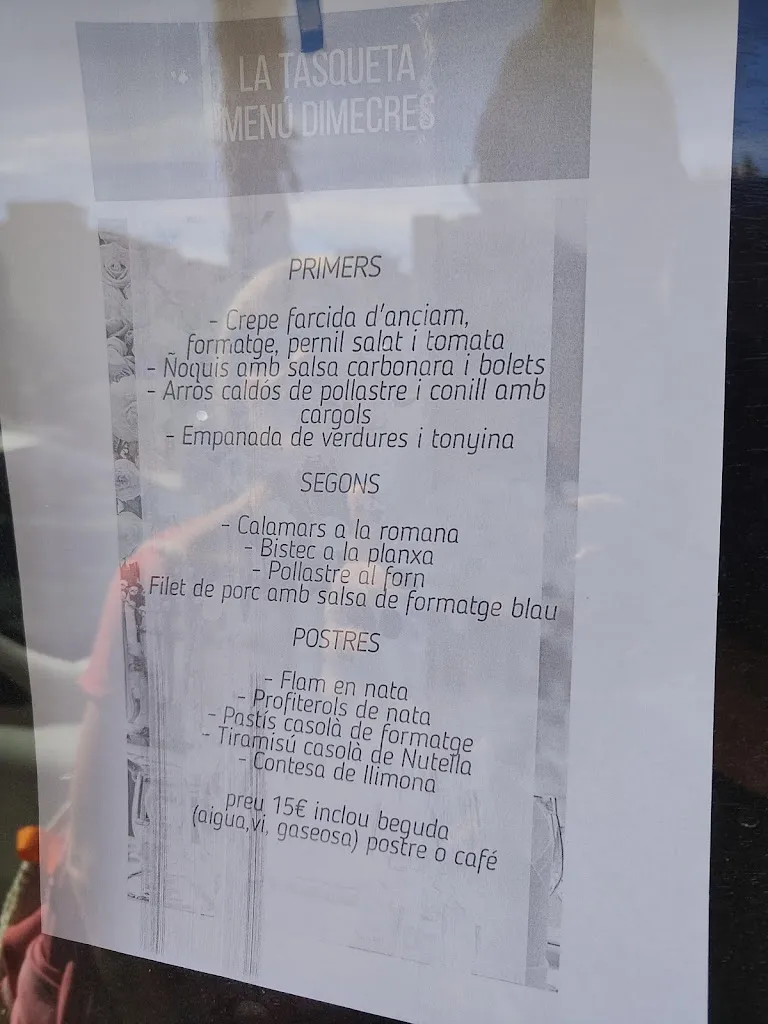 LA TASQUETA
MENÚ DIMECRES
PRIMERS
- Crepe farcida d'anciam,
formatge, pernil salat i tomata
- Ñoquis amb salsa carbonara i bolets
- Arròs caldós de pollastre i conill amb
cargols
- Empanada de verdures i tonyina
SEGONS
- Calamars a la romana
- Bistec a la planxa
- Pollastre al forn
Filet de porc amb salsa de formatge blau
POSTRES
- Flam en nata
- Profiterols de nata
- Pastís casolà de formatge
- Tiramisú casolà de Nutella
- Contesa de llimona
preu 15€ inclou beguda
(aigua,vi, gaseosa) postre o café